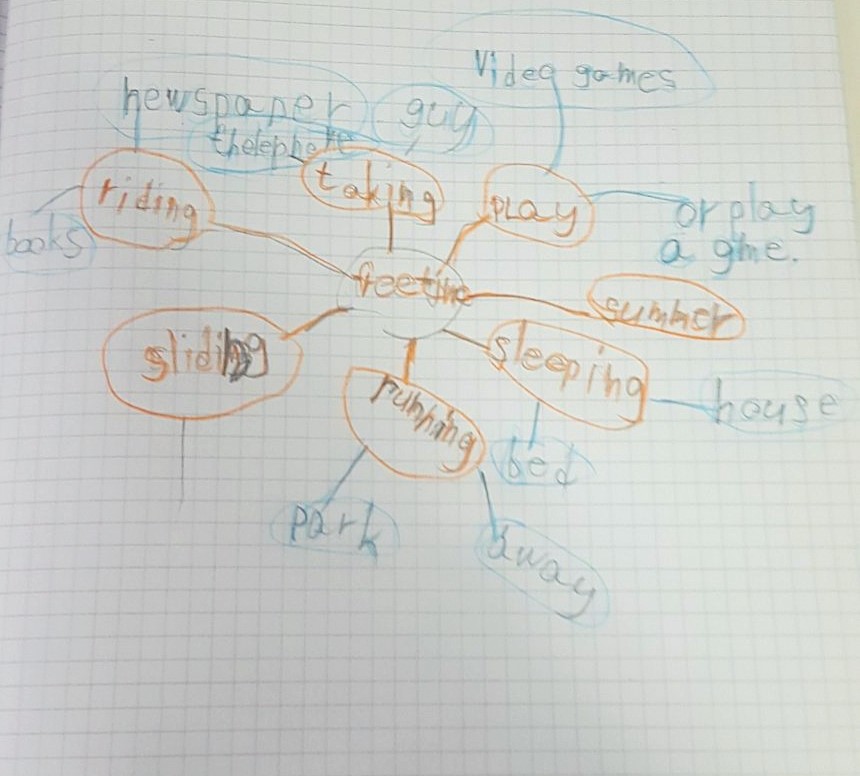 Video games
newspaper
guy
thelephone
taking
riding
play
or play
a gme.
books
freetime
summer
sliding
sleeping
running
house
bed
park
away